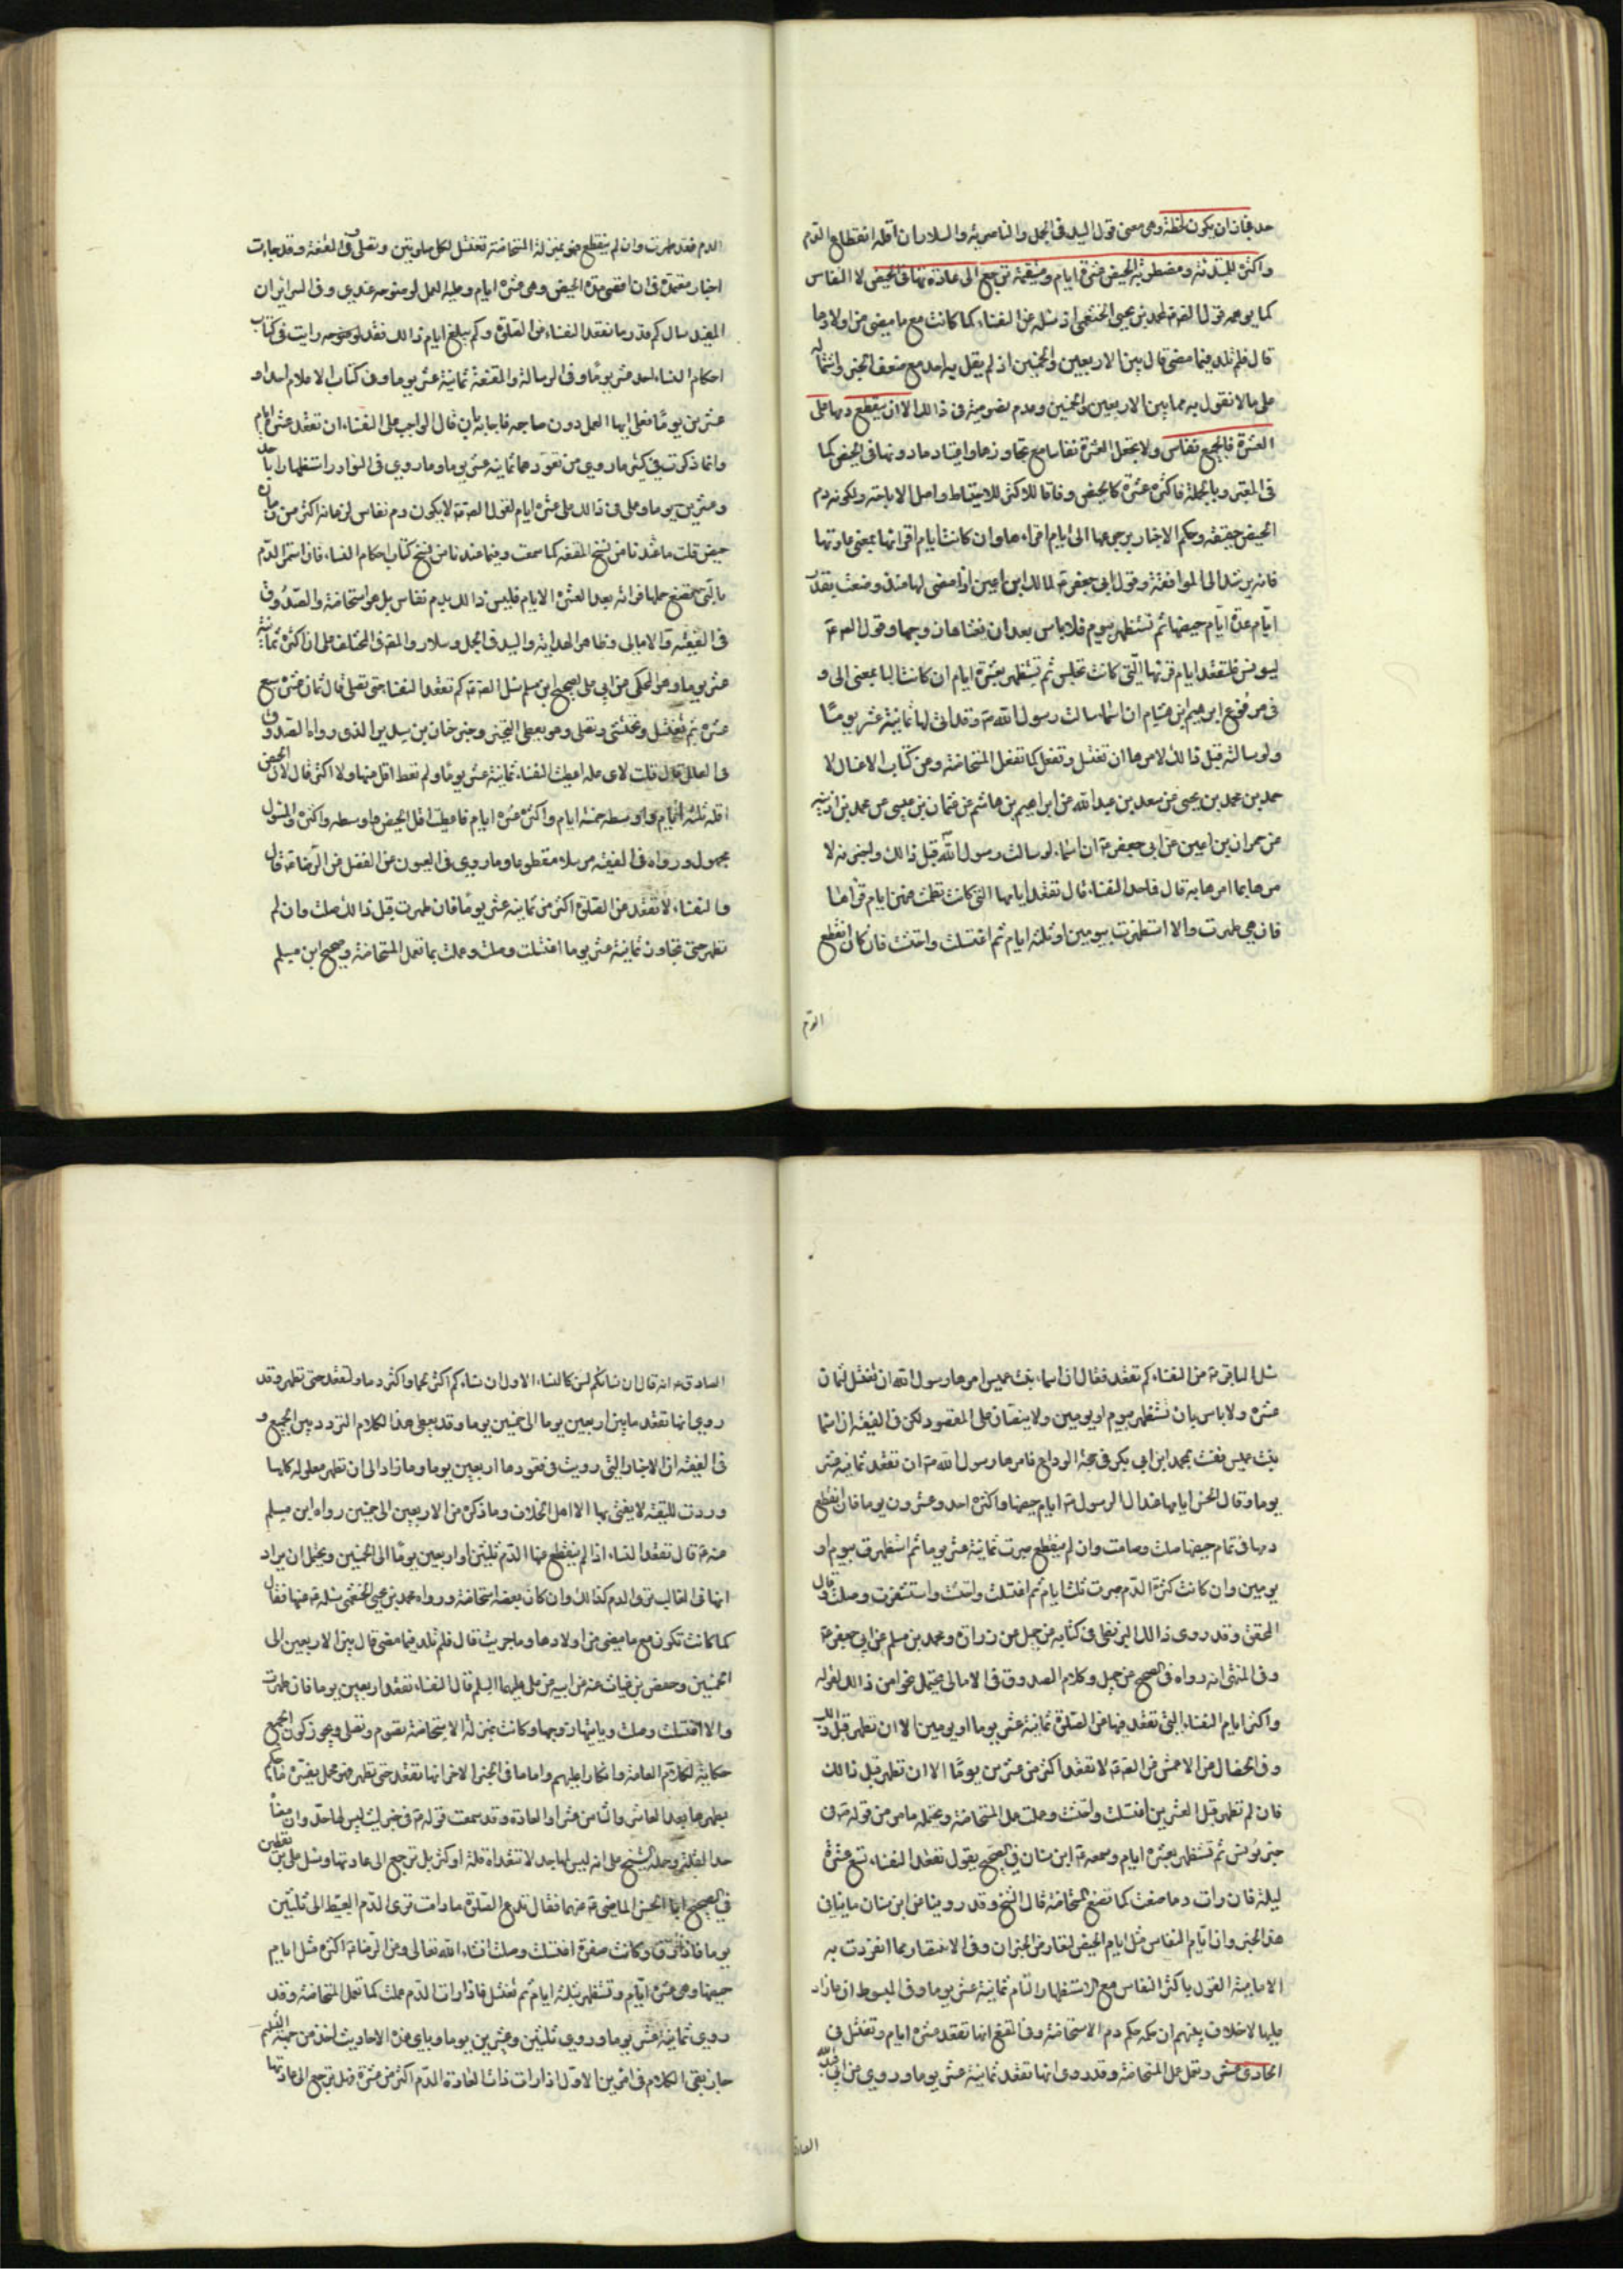 حد فجاز ان يكون لحظة وهى معنى قول السيد فى الجمل والناصرية والسلار ان اقله انقطاع الدم
واكثره للمبتدئة ومضطربة الحيض عشرة ايام ومستقيمة ترجع الى عادتها فى الحيض لا النفاس
كما يوهمه قول الصة لمحمد بن يحيى الخثعمى اذ سئله عن النفساء كما كانت مع ما مضى من اولادها
قال فلم تلد فيما مضى قال بين الاربعين والخمسين اذ لم يقل به احد مع ضعف الخبر واشتماله
على ما لا نقول به مما بين الاربعين والخمسين وعدم نصوصيته فى ذالك الا ان ينقطع دمها على
العشرة فالجميع نفاس ولا يجعل العشرة نفاسا مع تجاوزها واعتياد ما دونها فى الحيض كما
فى المعتبر وبالجملة فاكثره عشرة كالحيض وفاقا للاكثر للاحتياط واصل الاباحة ولكونه دم
الحيض حقيقة وحكم الاخبار برجوعها الى ايام اقراءها وان كانت ايام اقرائها بمعنى عادتها
فانه يرشد الى الموافقة وقول ابى جعفر ع لمالك ابن اعين اذا مضى لها منذ وضعت بقدر
ايّام عدة ايّام حيضها ثم تستظهر بيوم فلا باس بعد ان يغشاها زوجها وقول الصة
ليونس فلتقعد ايام قرئها الّتى كانت تجلس ثم تستظهر بعشرة ايام ان كانت البا بمعنى الى و
فى مرفوع ابرهيم ابن هشام ان اسما سالت رسول الله ص وقد اتى لها ثمانية عشر يومًا
ولو سالته قبل ذالك لامرها ان تغتسل وتفعل كما تفعل المستحاضة ومن كتاب الاغسال لا
حمد بن محمد بن يحيى عن سعد بن عبد الله عن ابراهيم بن هاشم عن عثمان بن عيسى عن عمر بن اذينه
عن حمران بن اعين عن ابى جعفر ع ان اسماء لو سالت رسول الله قبل ذالك ولخبرته لا
مرها بما امرها به قال فاحد النفساء قال تقعد ايامها التى كانت تطمث فيهن ايام قرأها
فان هى طهرت والا استظهرت بيومين او ثلثة ايام ثم اغتسلت واحتشت فان كان انقطع
الدم
الدم فقد طهرت وان لم ينقطع فهو بمنزلة المستحاضة تغتسل لكل صلوتين وتصلى وفى المقنعة وقد جاءت
اخبار معتمدة فى ان اقصى مدة الحيض وهى عشرة ايام وعليه العمل لوضوحه عندى وفى السرائر ان
المفيد سال كم قدر ما تقعد النفساء عن الصلوة وكم يبلغ ايام ذالك فقد رايت فى كتاب
احكام النساء احد عشر يومًا وفى الرسالة والمقنعة ثمانية عشر يوما وفى كتاب الاعلام احد او
عشرين يومًا فعلى ايها العمل دون صاحبه فاجابه بان قال الواجب على النفساء ان تقعد عشرة ايام
وانما ذكرت فى كتبى ما روى من قعودها ثمانية عشر يوما وما روى فى النوادر استظهارا باحد
وعشرين يوما وعملى فى ذالك على عشرة ايام لقول الصة لا يكون دم نفاس لزمانه اكثر من زمان
حيض قلت ما عندنا من نسخ المقنعه كما سمعت وفيما عندنا من نسخ كتاب احكام النساء فان استمر الدّم
فى الفقيه والامالى وظاهر الهداية والسيد فى الجمل وسلار والمقنع فى المختلف على ان اكثره ثمانية
عشر يوما وهو المحكى عن ابى على لصحيح ابن مسلم سئل الصة كم تقعد النفساء حتى تصلى قال ثمان عشرة سبع
عشرة ثم تغتسل وتحتشى وتصلى وهو يعطى التخيير وخبر حنان بن سدير الذى رواه الصدوق
فى العلل قال قلت لاى علة اعطيت النفساء ثمانية عشر يومًا ولم تعط اقل منها ولا اكثر قال لان الحيض
اقله ثلثة ايّام واوسطه خمسة ايام واكثره عشرة ايام فاعطيت اقل الحيض واوسطه واكثره والمسئول
مجهول ورواه فى الفقيه مرسلا مقطوعا وما روى فى العيون عن الفضل عن الرضا ع قال
والنفساء لا تقعد عن الصلوة اكثر من ثمانية عشر يومًا فان طهرت قبل ذالك صلت وان لم
تطهر حتى تجاوز ثمانية عشر يوما اغتسلت وصلت وعملت بما تعمل المستحاضة وصحيح ابن مسلم
سئل الباقر ع عن النفساء كم تقعد فقال ان اسماء بنت عميس امرها رسول الله ان تغتسل لثمان
عشرة ولا باس بان تستظهر بيوم او يومين ولا ينصان على المقصود لكن فى الفقيه ان اسما
بنت عميس نفست بمحمد ابن ابى بكر فى حجة الوداع فامرها رسول الله ص ان تقعد ثمانية عشر
يوما وقال الحسن ايامها عند ال الرسول ص ايام حيضها واكثره احد وعشرون يوما فان انقطع
دمها فى تمام حيضها صلت وصامت وان لم ينقطع صبرت ثمانية عشر يوما ثم استظهرت بيوم او
يومين وان كانت كثيرة الدّم صبرت ثلثة ايام ثم اغتسلت واحتشت واستثفرت وصلت قال
المحقق وقد روى ذالك البزنطى فى كتابه عن جميل عن زرارة ومحمد بن مسلم عن ابى جعفر ع
وفى المنتهى انه رواه فى الصحيح عن جميل وكلام الصدوق فى الامالى يحتمل نحوا من ذالك لقوله
واكثر ايام النفساء التى تقعد فيها عن الصلوة ثمانية عشر يوما او يومين الا ان تطهر قبل ذلك
وفى الخصال عن الاعمش عن الصة لا تقعد اكثر من عشرين يومًا الا ان تطهر قبل ذالك
فان لم تطهر قبل العشرين اغتسلت واحتشت وعملت عمل المستحاضة ويحتمله ما مر من قوله ع فى
خبر يونس ثم تستظهر بعشرة ايام وسمعه ع ابن سنان فى الصحيح يقول تقعد النفساء تسع عشرة
ليلة فان رات دما صنعت كما تصنع المستحاضة قال الشيخ وقد روينا عن ابن سنان ما ينافى
هذا الخبر وان ايّام النفاس مثل ايام الحيض فتعارض الخبران وفى الانتصار مما انفردت به
الامامية القول بان اكثر النفاس مع الاستظهار التام ثمانية عشر يوما وفى المبسوط ان ما زاد
عليها لا خلاف بينهم ان حكمه حكم دم الاستحاضة وفى المقنع انها تقعد عشرة ايام وتغتسل فى
الحادى عشر وتعمل عمل المستحاضة وقد روى انها تقعد ثمانية عشر يوما وروى عن ابى عبد الله
الصادق
الصادق ع انه قال ان نساءكم لسن كالنساء الاول ان نساءكم اكثر لحما واكثر دما فلتقعد حتى تطهر وقد
روى انها تقعد ما بين اربعين يوما الى خمسين يوما وقد يعطى هذا الكلام التردد بين الجميع و
فى الفقيه ان الاخبار التى رويت فى قعودها اربعين يوما وما زاد الى ان تطهر معلولة كلها
وردت للتقية لا يفتى بها الا اهل الخلاف وما ذكره من الاربعين الى خمسين رواه ابن مسلم
عنه ع قال تقعد النساء اذا لم ينقطع عنها الدّم ثلثين او اربعين يومًا الى الخمسين ويحتمل ان يراد
كما كانت تكون مع ما مضى من اولادها وما جربت قال فلم تلد فيما مضى قال بين الاربعين الى
الخمسين وحفص بن غياث عنه عن ابيه عن على عليهما السلم قال النفساء تقعد اربعين يوما فان طهرت
والا اغتسلت وصلت وياتيها زوجها وكانت بمنزلة الاستحاضة تصوم وتصلى ويجوز كون الجميع
حكاية لكلام العامة وانكارا عليهم واما ما فى الخبر الاخر انها تقعد حتى تطهر
حد القلة وحمله الشيخ على انه ليس لها حد لا تتعداه قلة او كثر بل ترجع الى عادتها وسئل على بن يقطين
فى الصحيح ابا الحسن الماضى ع عنهما فقال تدع الصلوة ما دامت ترى الدّم العبيط الى ثلثين
يوما فاذا رق وكانت صفرة اغتسلت وصلت انشاء الله تعالى وعن الرضا ع اكثره مثل ايام
حيضها وهى عشرة ايّام وتستظهر بثلثة ايام ثم تغتسل فاذا رات الدّم عملت كما تعمل المستحاضة وقد
روى ثمانية عشر يوما وروى ثلثين وعشرين يوما وباى هذه الاحاديث اخذ من جهة التسليم
جاز بقى الكلام فى امرين الاول اذا رات ذات العادة الدّم اكثر من عشرة فهل ترجع الى عادتها